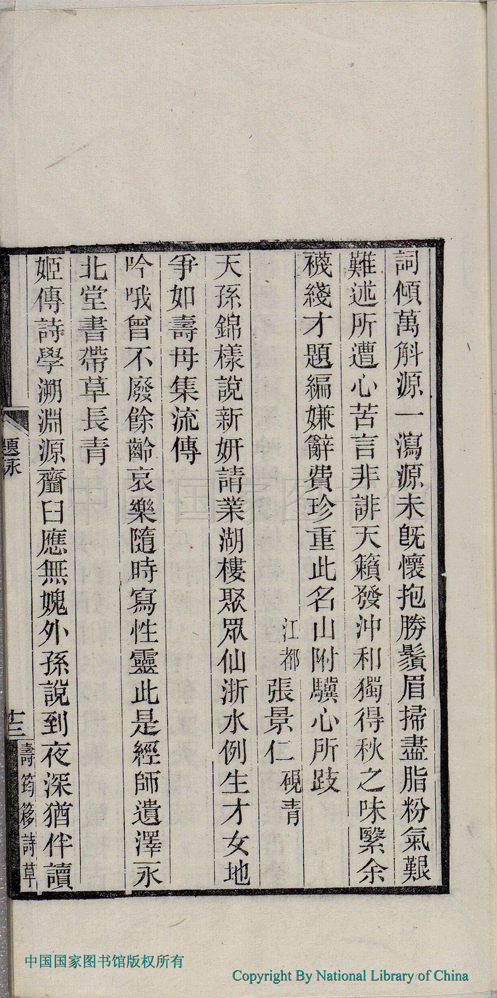 詞傾萬斛源一瀉源未旣懷抱勝鬚眉掃盡脂粉氣艱
難述所遭心苦言非誹天籟發沖和獨得秋之味緊余
襪綫才題編嫌辭費珍重此名山附驥心所跂
江都張景仁硯青
天孫錦樣說新妍請業湖樓聚眾仙浙水例生才女地
爭如壽母集流傳
吟哦曾不廢餘齡哀樂隨時寫性靈此是經師遺澤永
北堂書帶草長青
姬傳詩學溯淵源齏臼應無媿外孫說到夜深猶伴讀
題詠
十三
壽筠簃詩草
中国国家图书馆版权所有
Copyright By National Library of China